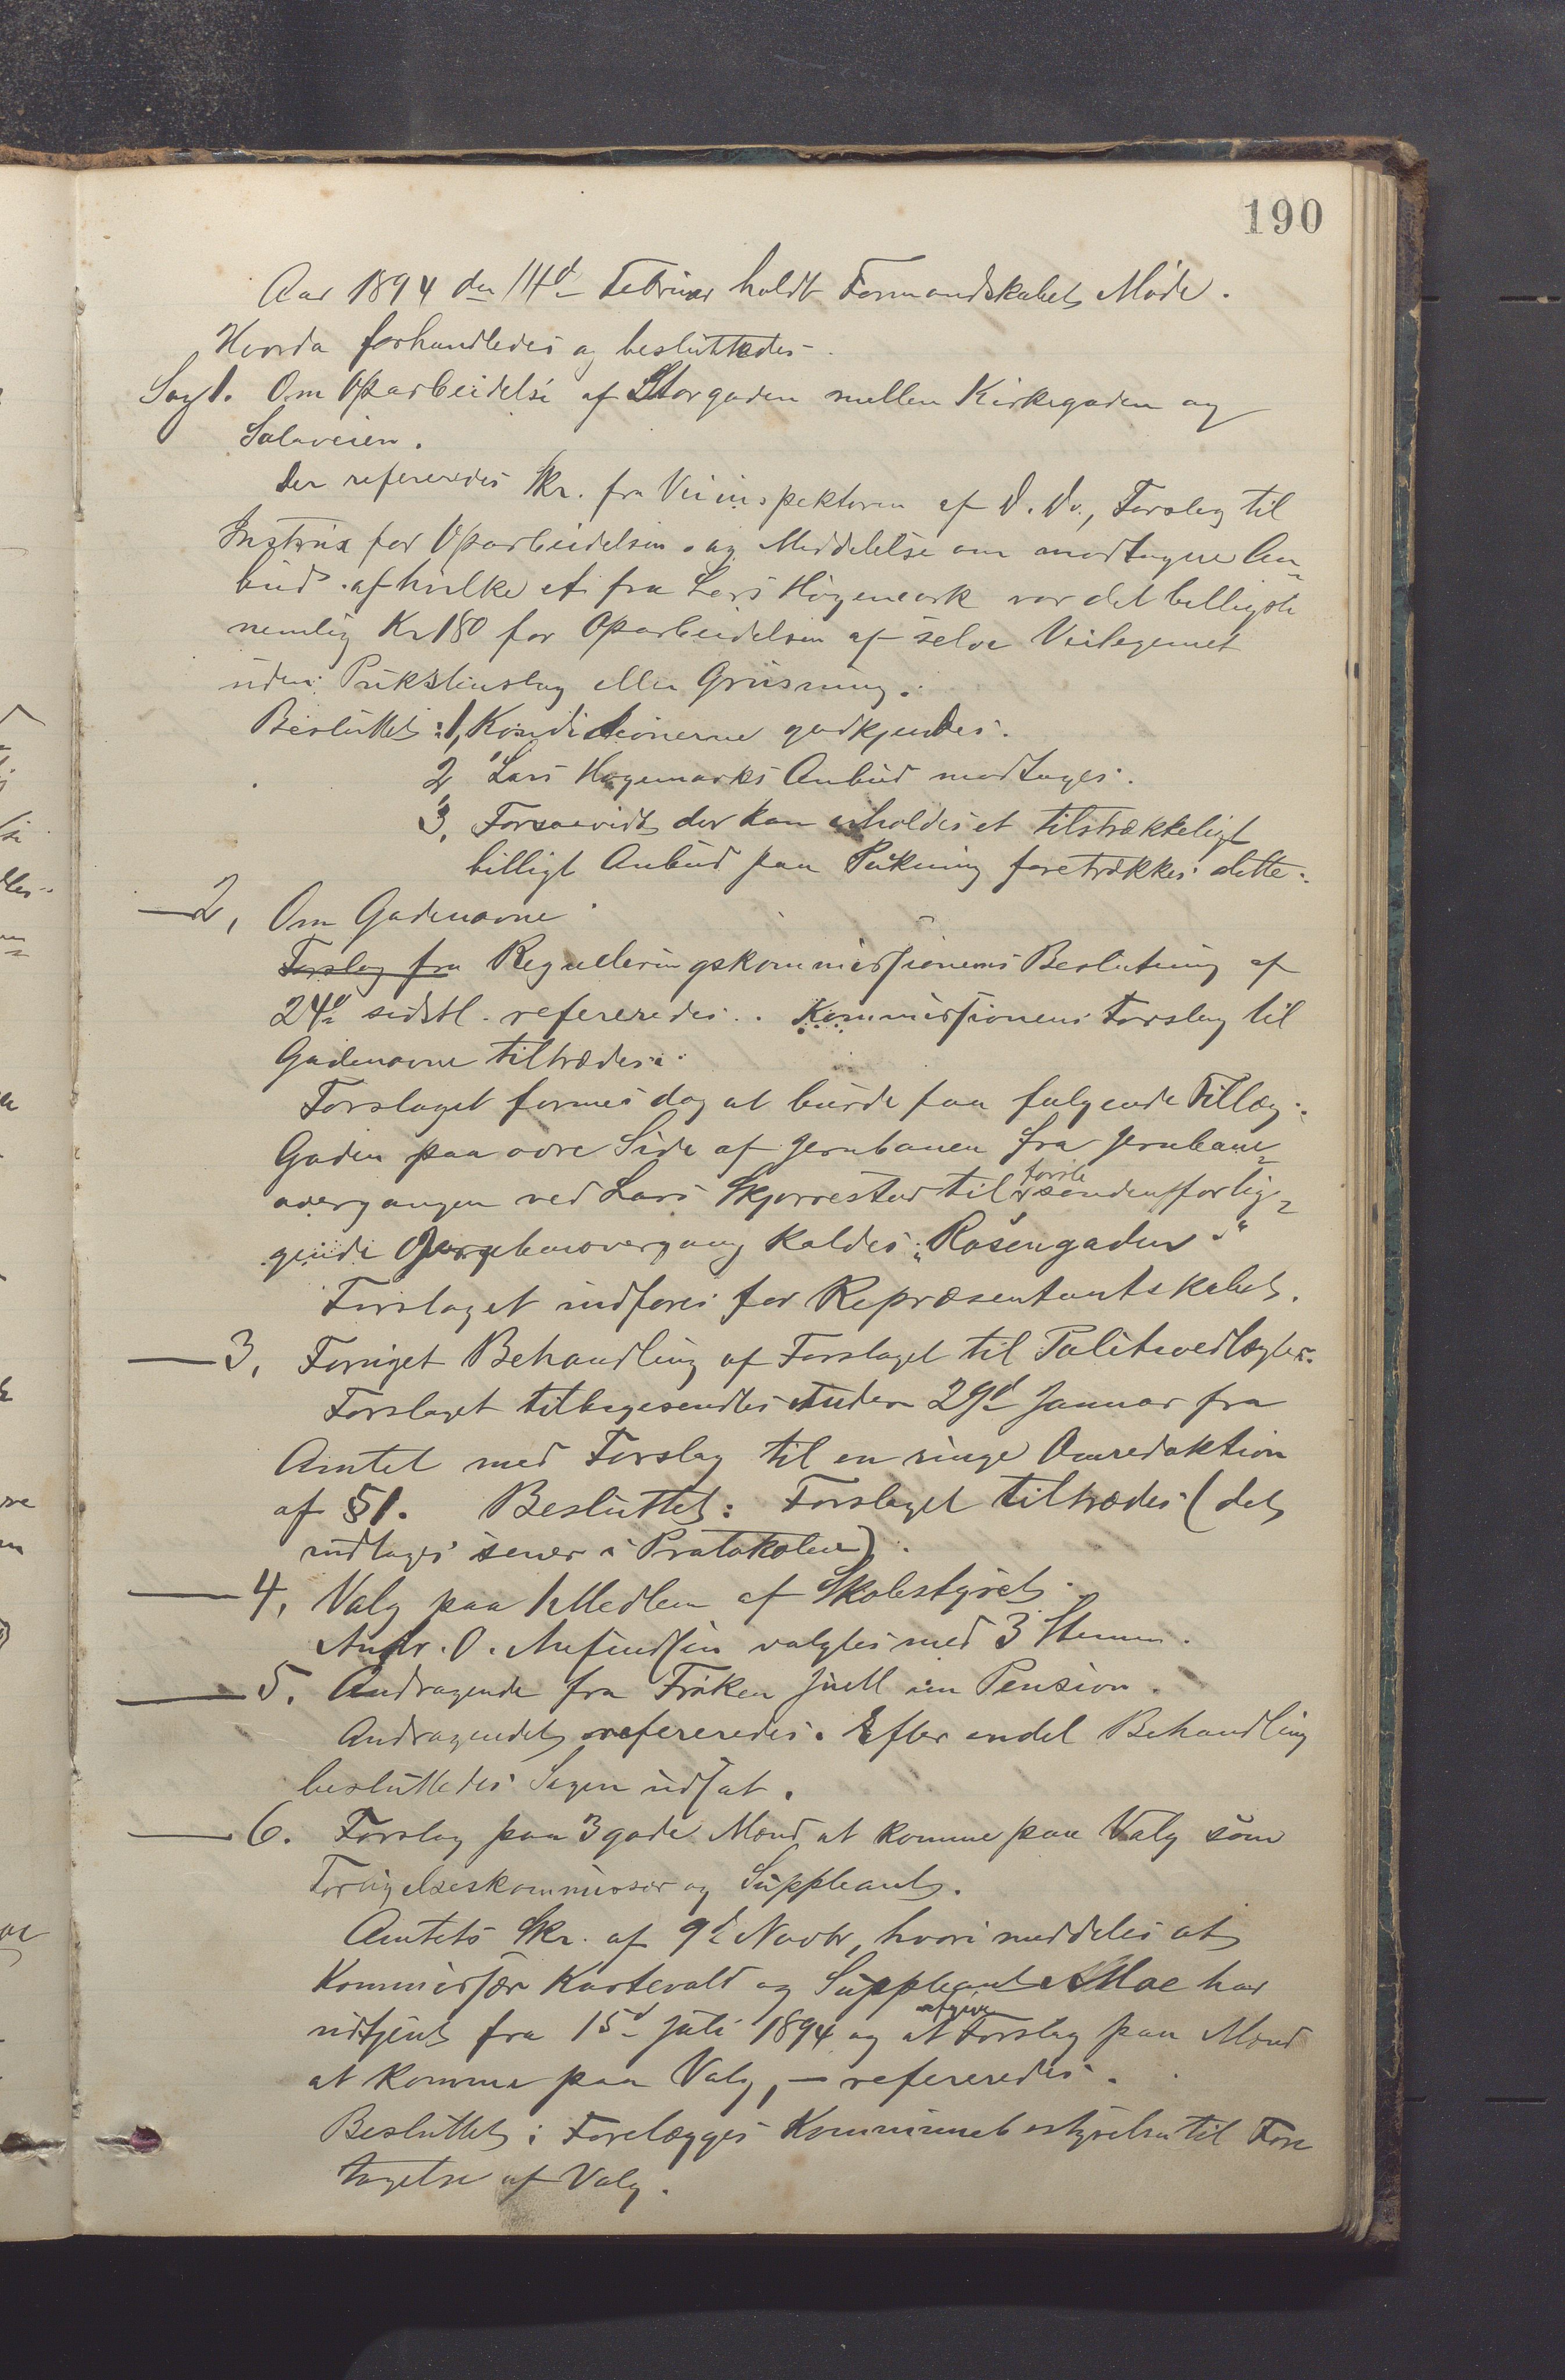 190
Aar 1894 den 14d Februar holdt Formandskabet Møde.
Hvorda forhandledes og besluttedes.
Sag 1. Om Oparbeidelse af Storgaden mellem Kirkegaden og
Solaveien.
Der refereredes Skr. fra Veiinspektøren af d. do., Forslag til
Instrux for Oparbeidelsen og Meddelelse om modtagne An-
bud af hvilke et fra Lars Høgemark var det billigste
nemlig Kr 180 for Oparbeidelsen af selve Veilegemet
uden Pukstenslag eller Grusning.
Besluttet: 1, Konditionerne godkjendes.
2, Lars Høgemarks Anbud modtages.
3, Forsaavidt der kan erholdes et tilstrækkeligt
billigt Anbud paa Pukning foretrækkes dette.
— 2, Om Gadenavne
Forslag fra Reguleringskommissionens Beslutning af
24d sidstl. refereredes. Kommissionens Forslag til
Gadenavne tiltrædes.
Forslaget formenes dog at burde faa følgende Tillæg:
Gaden paa øvre Side af Jernbanen fra Jernbane-
overgangen ved Lars Skjorrestad til første søndenforlig-
gende Jernbaneovergang kaldes „Rosengaden".
Forslaget indføres for Repræsentantskabet.
— 3, Fornyet Behandling af Forslaget til Politivedtægter.
Forslaget tilbagesendtes under 29d Januar fra
Amtet med Forslag til en ringe Omredaktion
af §1. Besluttet: Forslaget tiltrædes (det
indtages senere i Protokolen).
— 4, Valg paa 1 Medlem af Skolestyret.
Andr. O. Aufindsen valgtes med 3 Stemm.
— 5. Andragende fra Frøken Juell om Pension.
Andragendet refereredes. Efter endel Behandling
besluttedes Sagen udsat.
— 6. Forslag paa 3 gode Mænd at komme paa Valg som
Forligelseskommissær og Suppleant.
Amtets Skr. af 9d Novbr, hvori meddeles at
Kommissær Kartevold og Suppleant Moe har
udtjent fra 15d Juli 1894 og at afgive Forslag paa Mænd
at komme paa Valg, — refereredes.
Besluttet: Forelægges Kommunebestyrelsen til Fore
tagelse af Valg.